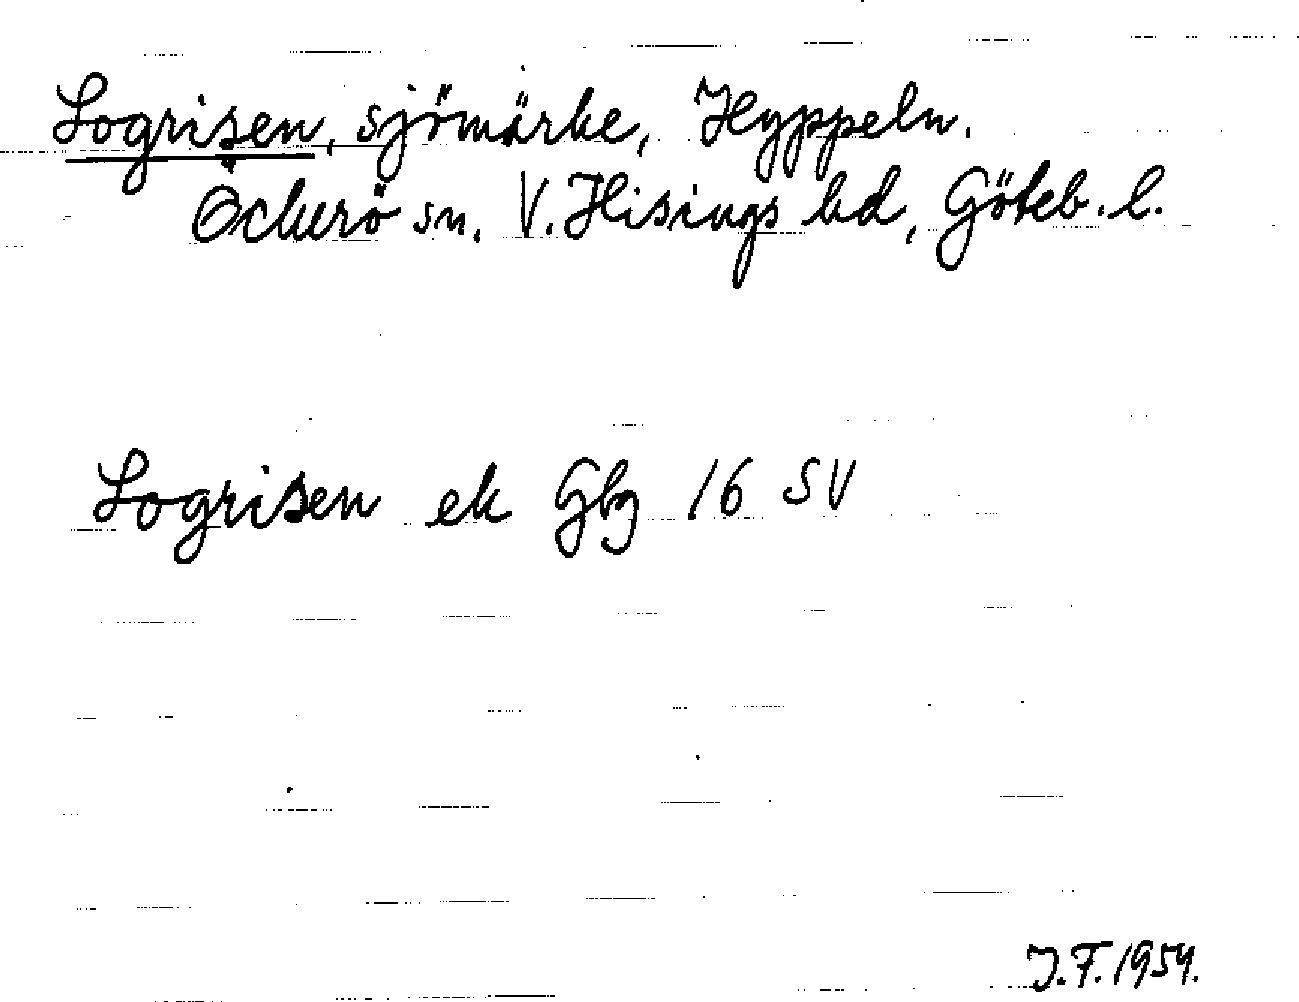 Logrisen, sjömärke, Hyppeln.
Öckerö sn. V. Hisings hd, Göteb. l.
Logrisen ek Gbg 16 SV
J.F. 1954.